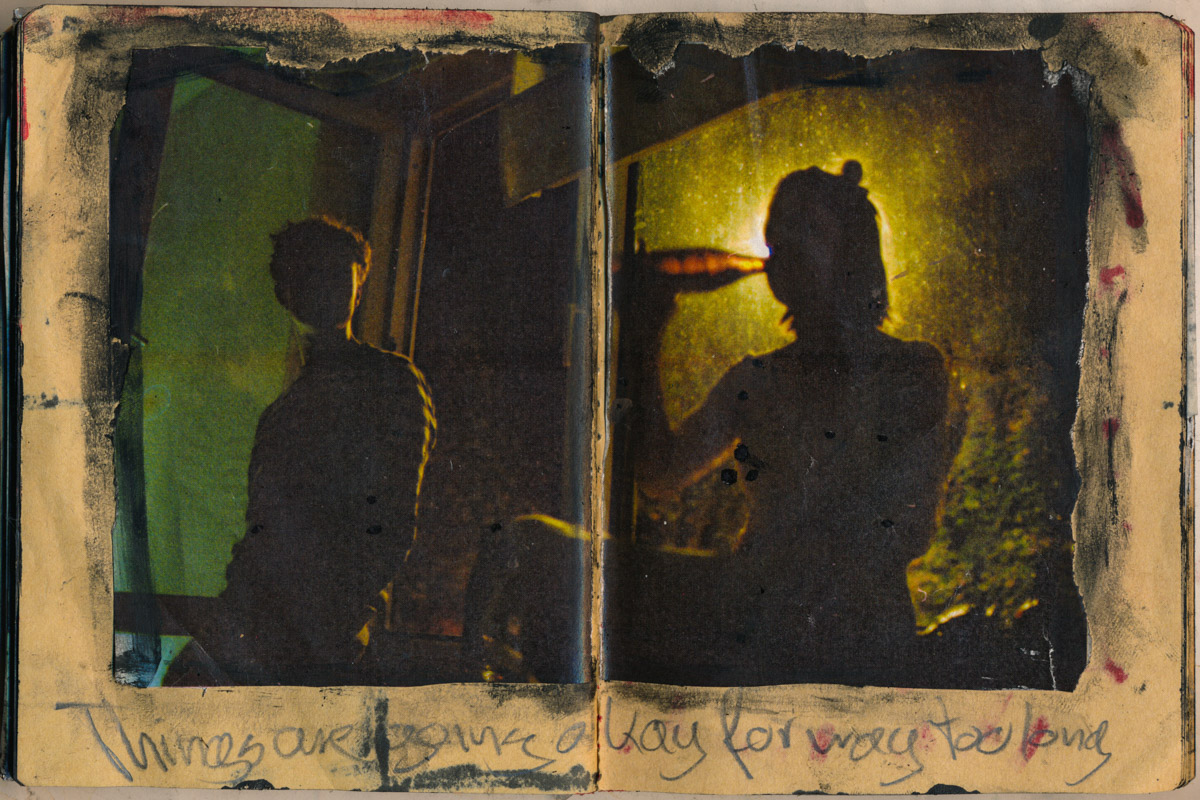 Things are going okay for way too long